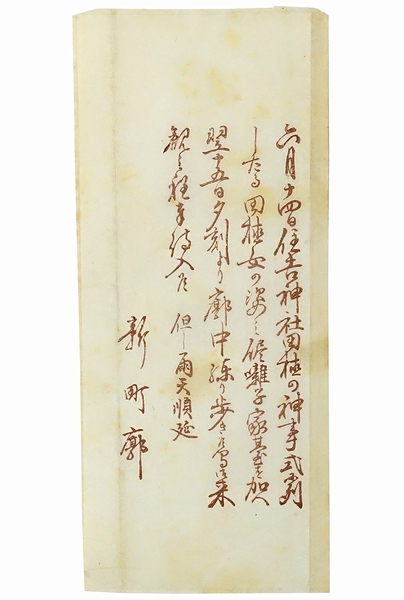 六月十四日住吉神社田植の神事式に列
したる田植女の姿に任囃子家臺を加へ
翌十五日夕刻より廓中練り歩き候
観之程奉待入候 但し雨天順延
新町廓